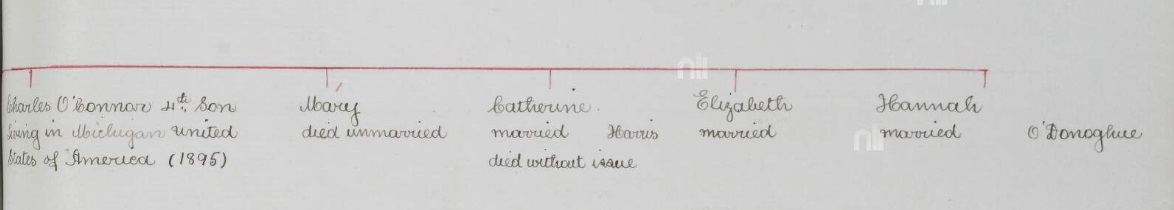 Charles O'Connor 4th Son
living in Michigan United
States of America (1895)
Mary
died unmarried
Catherine
married Harris
died without issue
Elizabeth
married
Hannah
married O'Donoghue